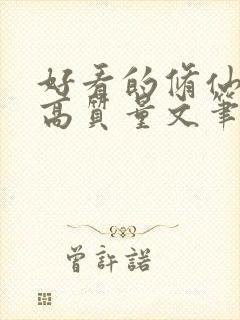 好看的脩仙
高质量文筆
曾許諾